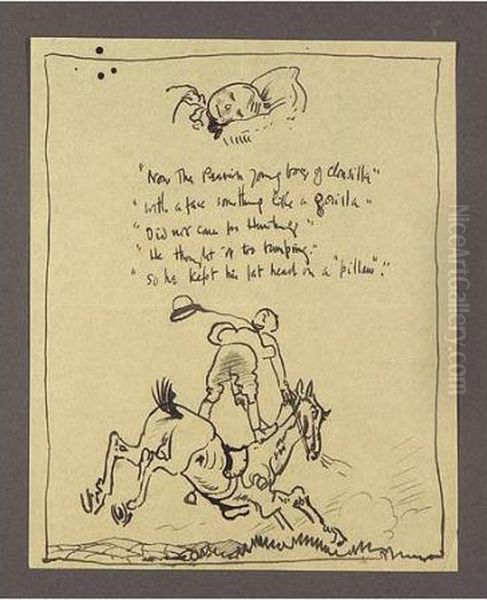 "Now The young boy of clonsilla"
"with a face something like a gorilla"
"Did not care for Hunting"
"He thought it too bumping."
"So he kept his fat head on a "pillow"."
NiceArtGallery.com